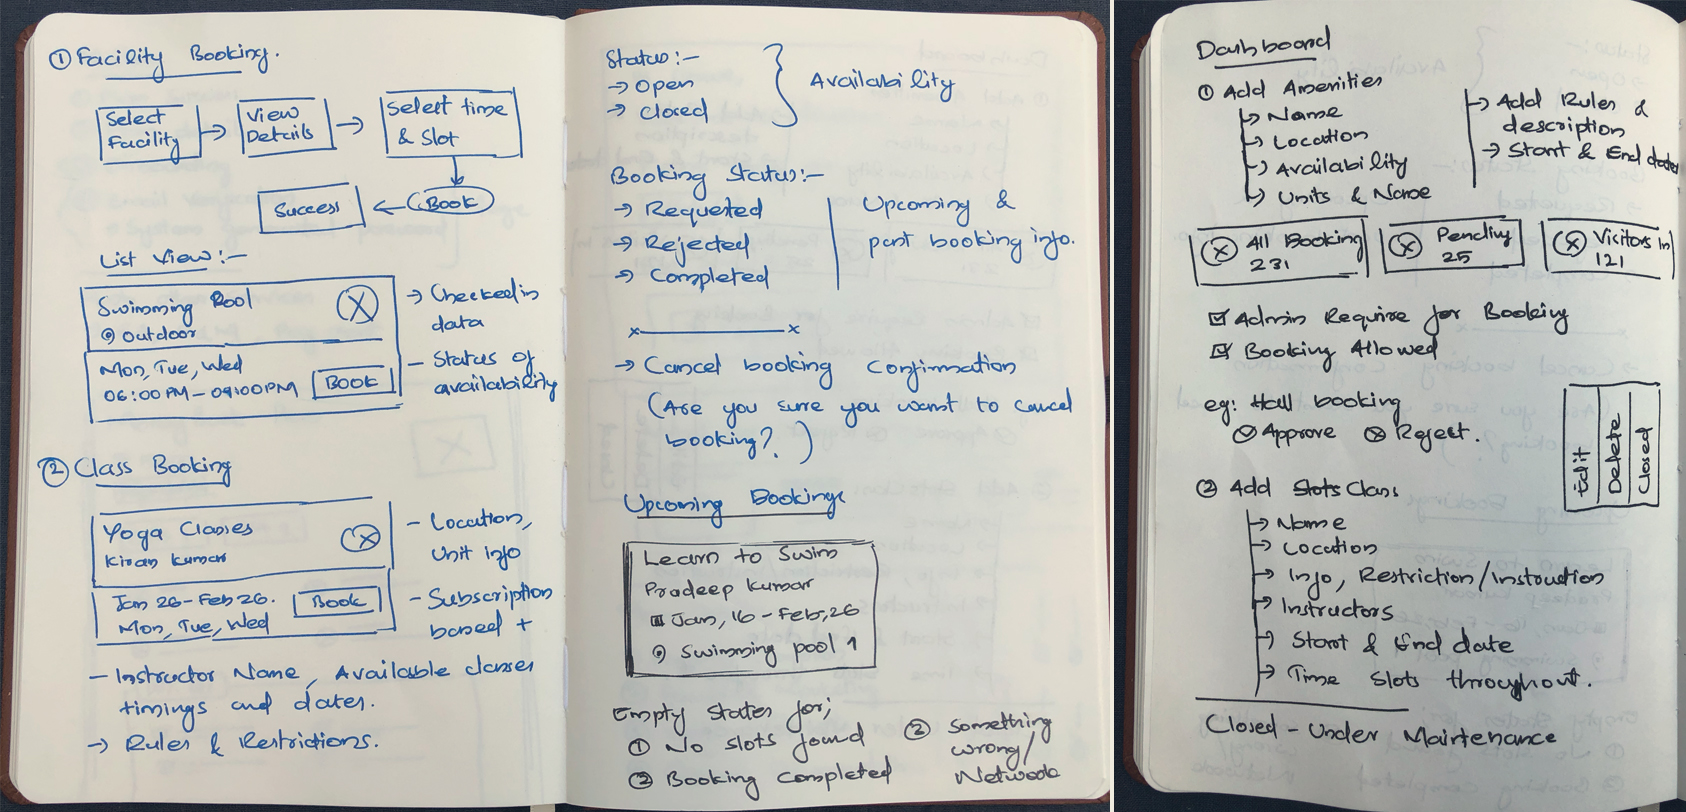 ① Facility Booking.
Select Facility → View Details → Select time & Slot
Success ← Book
List View:-
Swimming Pool
Outdoor
Mon, Tue, Wed
06:00 PM – 09:00 PM
Book
→ Checked in data
– Status of availability
② Class Booking
Yoga Classes
Kiran Kumar
Jan 26 - Feb 26.
Mon, Tue, Wed
Book
– Location, Unit info
– Subscription based +
– Instructor Name, Available classes
timings and dates.
→ Rules & Restrictions.
Status:-
→ Open
→ Closed
Availability
Booking Status:-
→ Requested
→ Rejected
→ Completed
Upcoming &
past booking info.
x———x
→ Cancel booking Confirmation
(Are you sure you want to cancel
booking?)
Upcoming Bookings
Learn to Swim
Pradeep Kumar
Jan, 16 – Feb, 26
Swimming pool 1
Empty States for;
① No slots found
② Booking completed
② Something
wrong/
Network
Dashboard
① Add Amenities
→ Name
→ Location
→ Availability
→ Units & Name
→ Add Rules &
description
→ Start & End date
All Booking
231
Pending
25
Visitors in
121
☑ Admin Require for Booking
☑ Booking Allowed
eg: Hall booking
Approve Reject.
Edit
Delete
Closed
② Add Slots Class
→ Name
→ Location
→ Info, Restriction/Instruction
→ Instructors
→ Start & End date
→ Time Slots throughout.
Closed - Under Maintenance